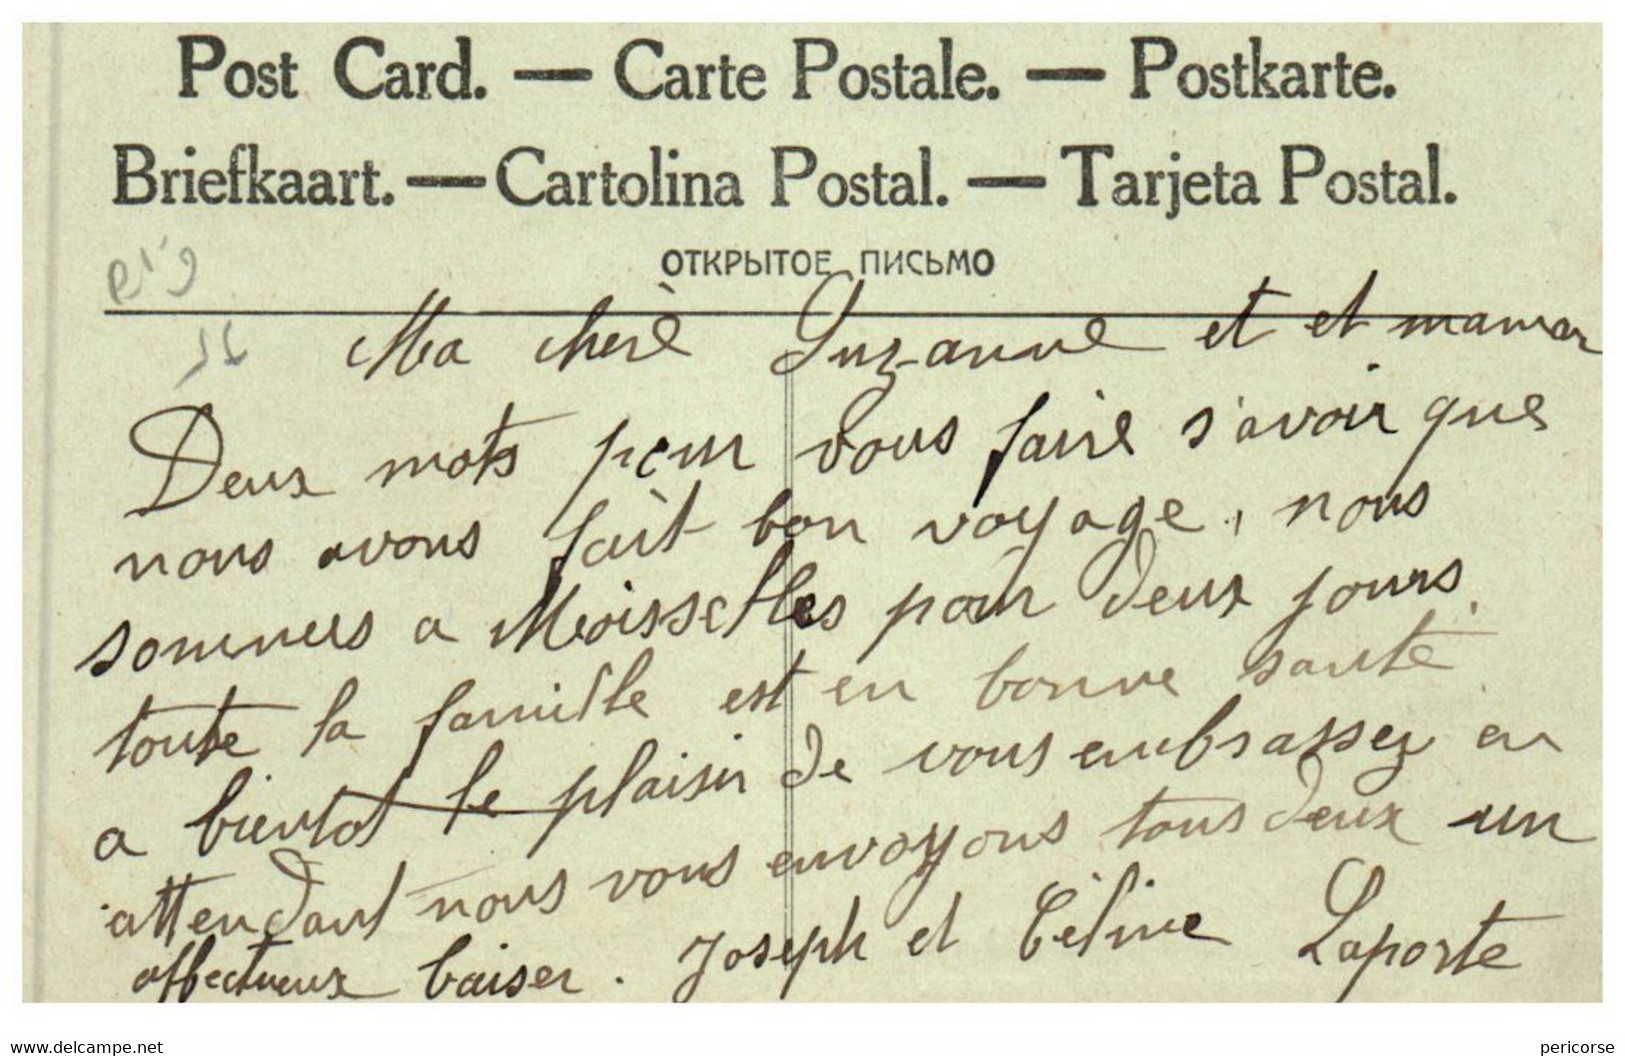 Post Card. — Carte Postale. — Postkarte.
Briefkaart. — Cartolina Postal. — Tarjeta Postal.
ОТКРЫТОЕ ПИСЬМО
Ma cherè Suzanne et et maman
Deux mots pour vous faire s'avoir que
nous avons fait bon voyage, nous
sommes a Moisselles pour deux jours,
toute la famille est en bonne sante
a bientot le plaisir de vous embrassez en
attendant nous vous envoyons tous deux un
affectueux baiser. Joseph et Céline Laporte
www.delcampe.net
pericorse